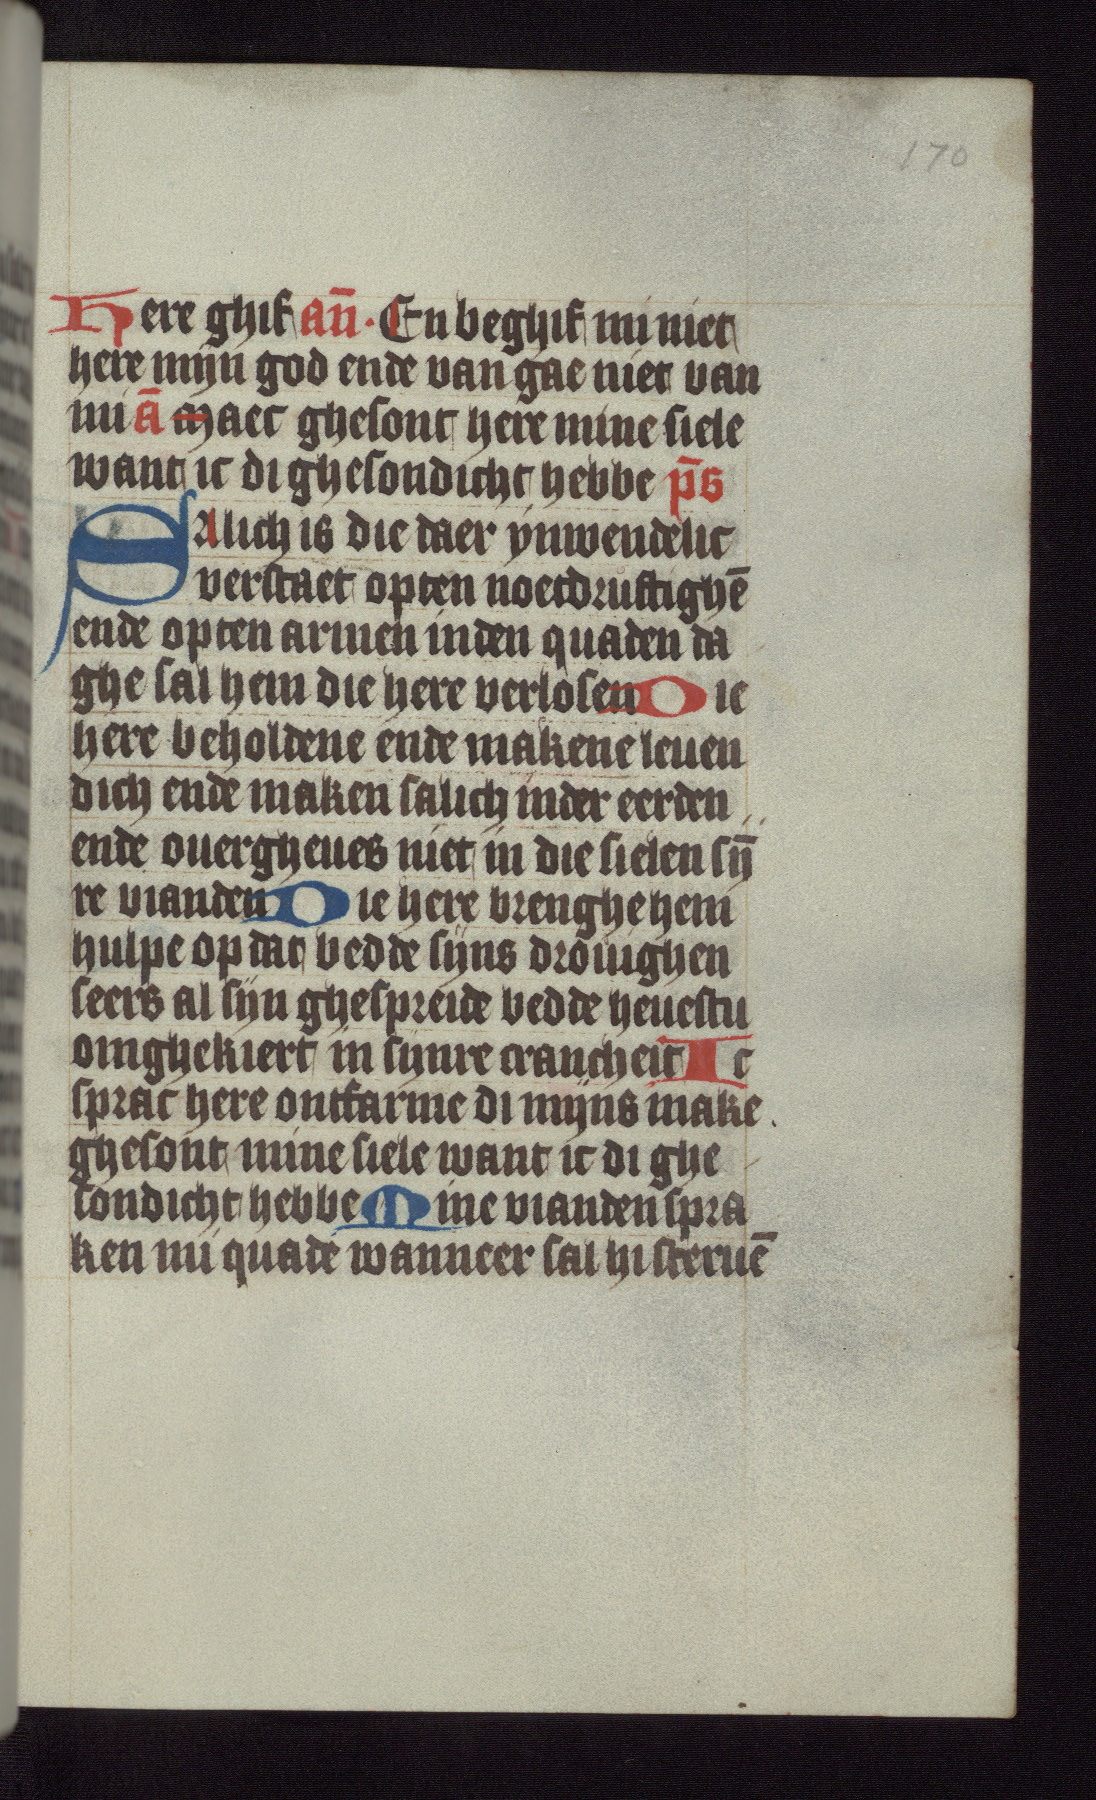 170
Here ghif an̄. En beghif mi niet
here mijn god ende van gae niet van
mi ā Maec ghesont here mine siele
want ic di ghesondicht hebbe p̄s
Salich is die daer ynwendelic
verstaet opten noetdruftighē
ende opten armen inden quaden da
ghe sal hem die here verlosen Die
here beholdene ende makene leuen
dich ende maken salich inder eerden
ende ouergheues niet in die sielen sȳ
re vianden Die here brenghe hem
hulpe op dat bedde sijns drouighen
seers al sijn ghespreide bedde heuestu
omghekiert in sijnre crancheit Ic
sprac here ontfarme di mijns make
ghesont mine siele want ic di ghe
sondicht hebbe Mine vianden spra
ken mi quade wanneer sal hi steruē